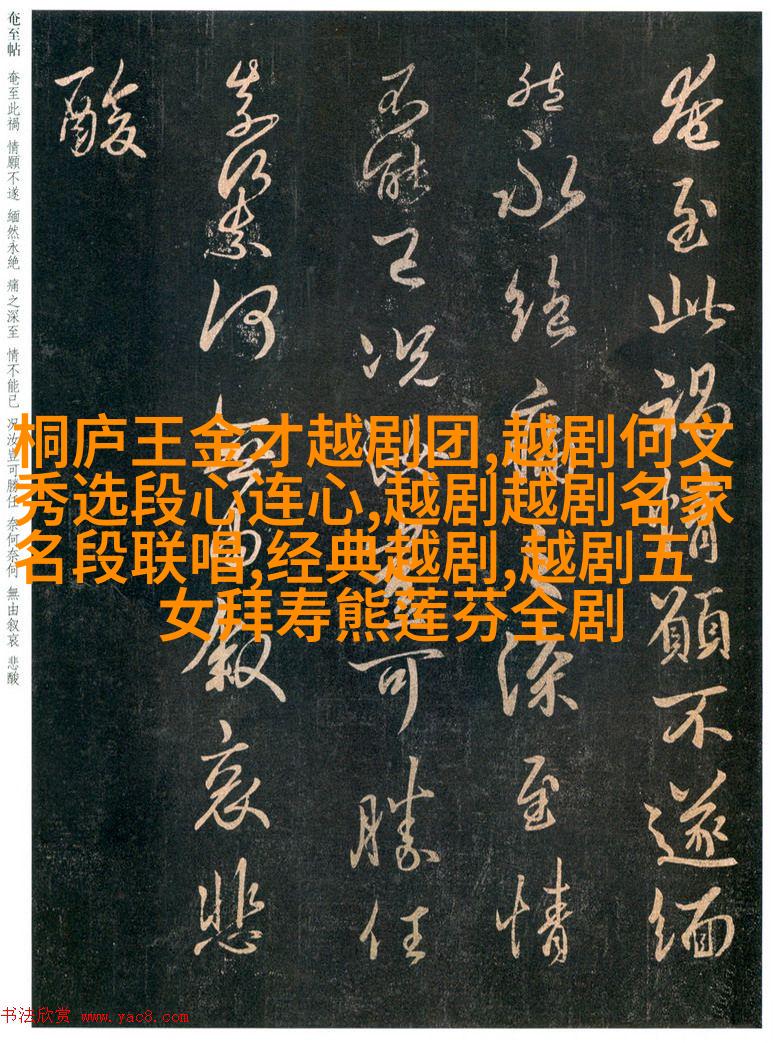 奄至帖 奄至此禍 情願不遂 緬然永絶 痛之深至 情不能已 况汝豈可勝任 奈何奈何 無由叙哀 悲酸
奄至此禍情願不遂緬
然永絶痛之深至情
不能已况汝豈可勝任
奈何奈何無由叙哀悲
酸
桐庐王金才越剧团,越剧何文
秀选段心连心,越剧越剧名家
名段联唱,经典越剧,越剧五
女拜寿熊莲芬全剧
书法欣赏 www.yac8.com